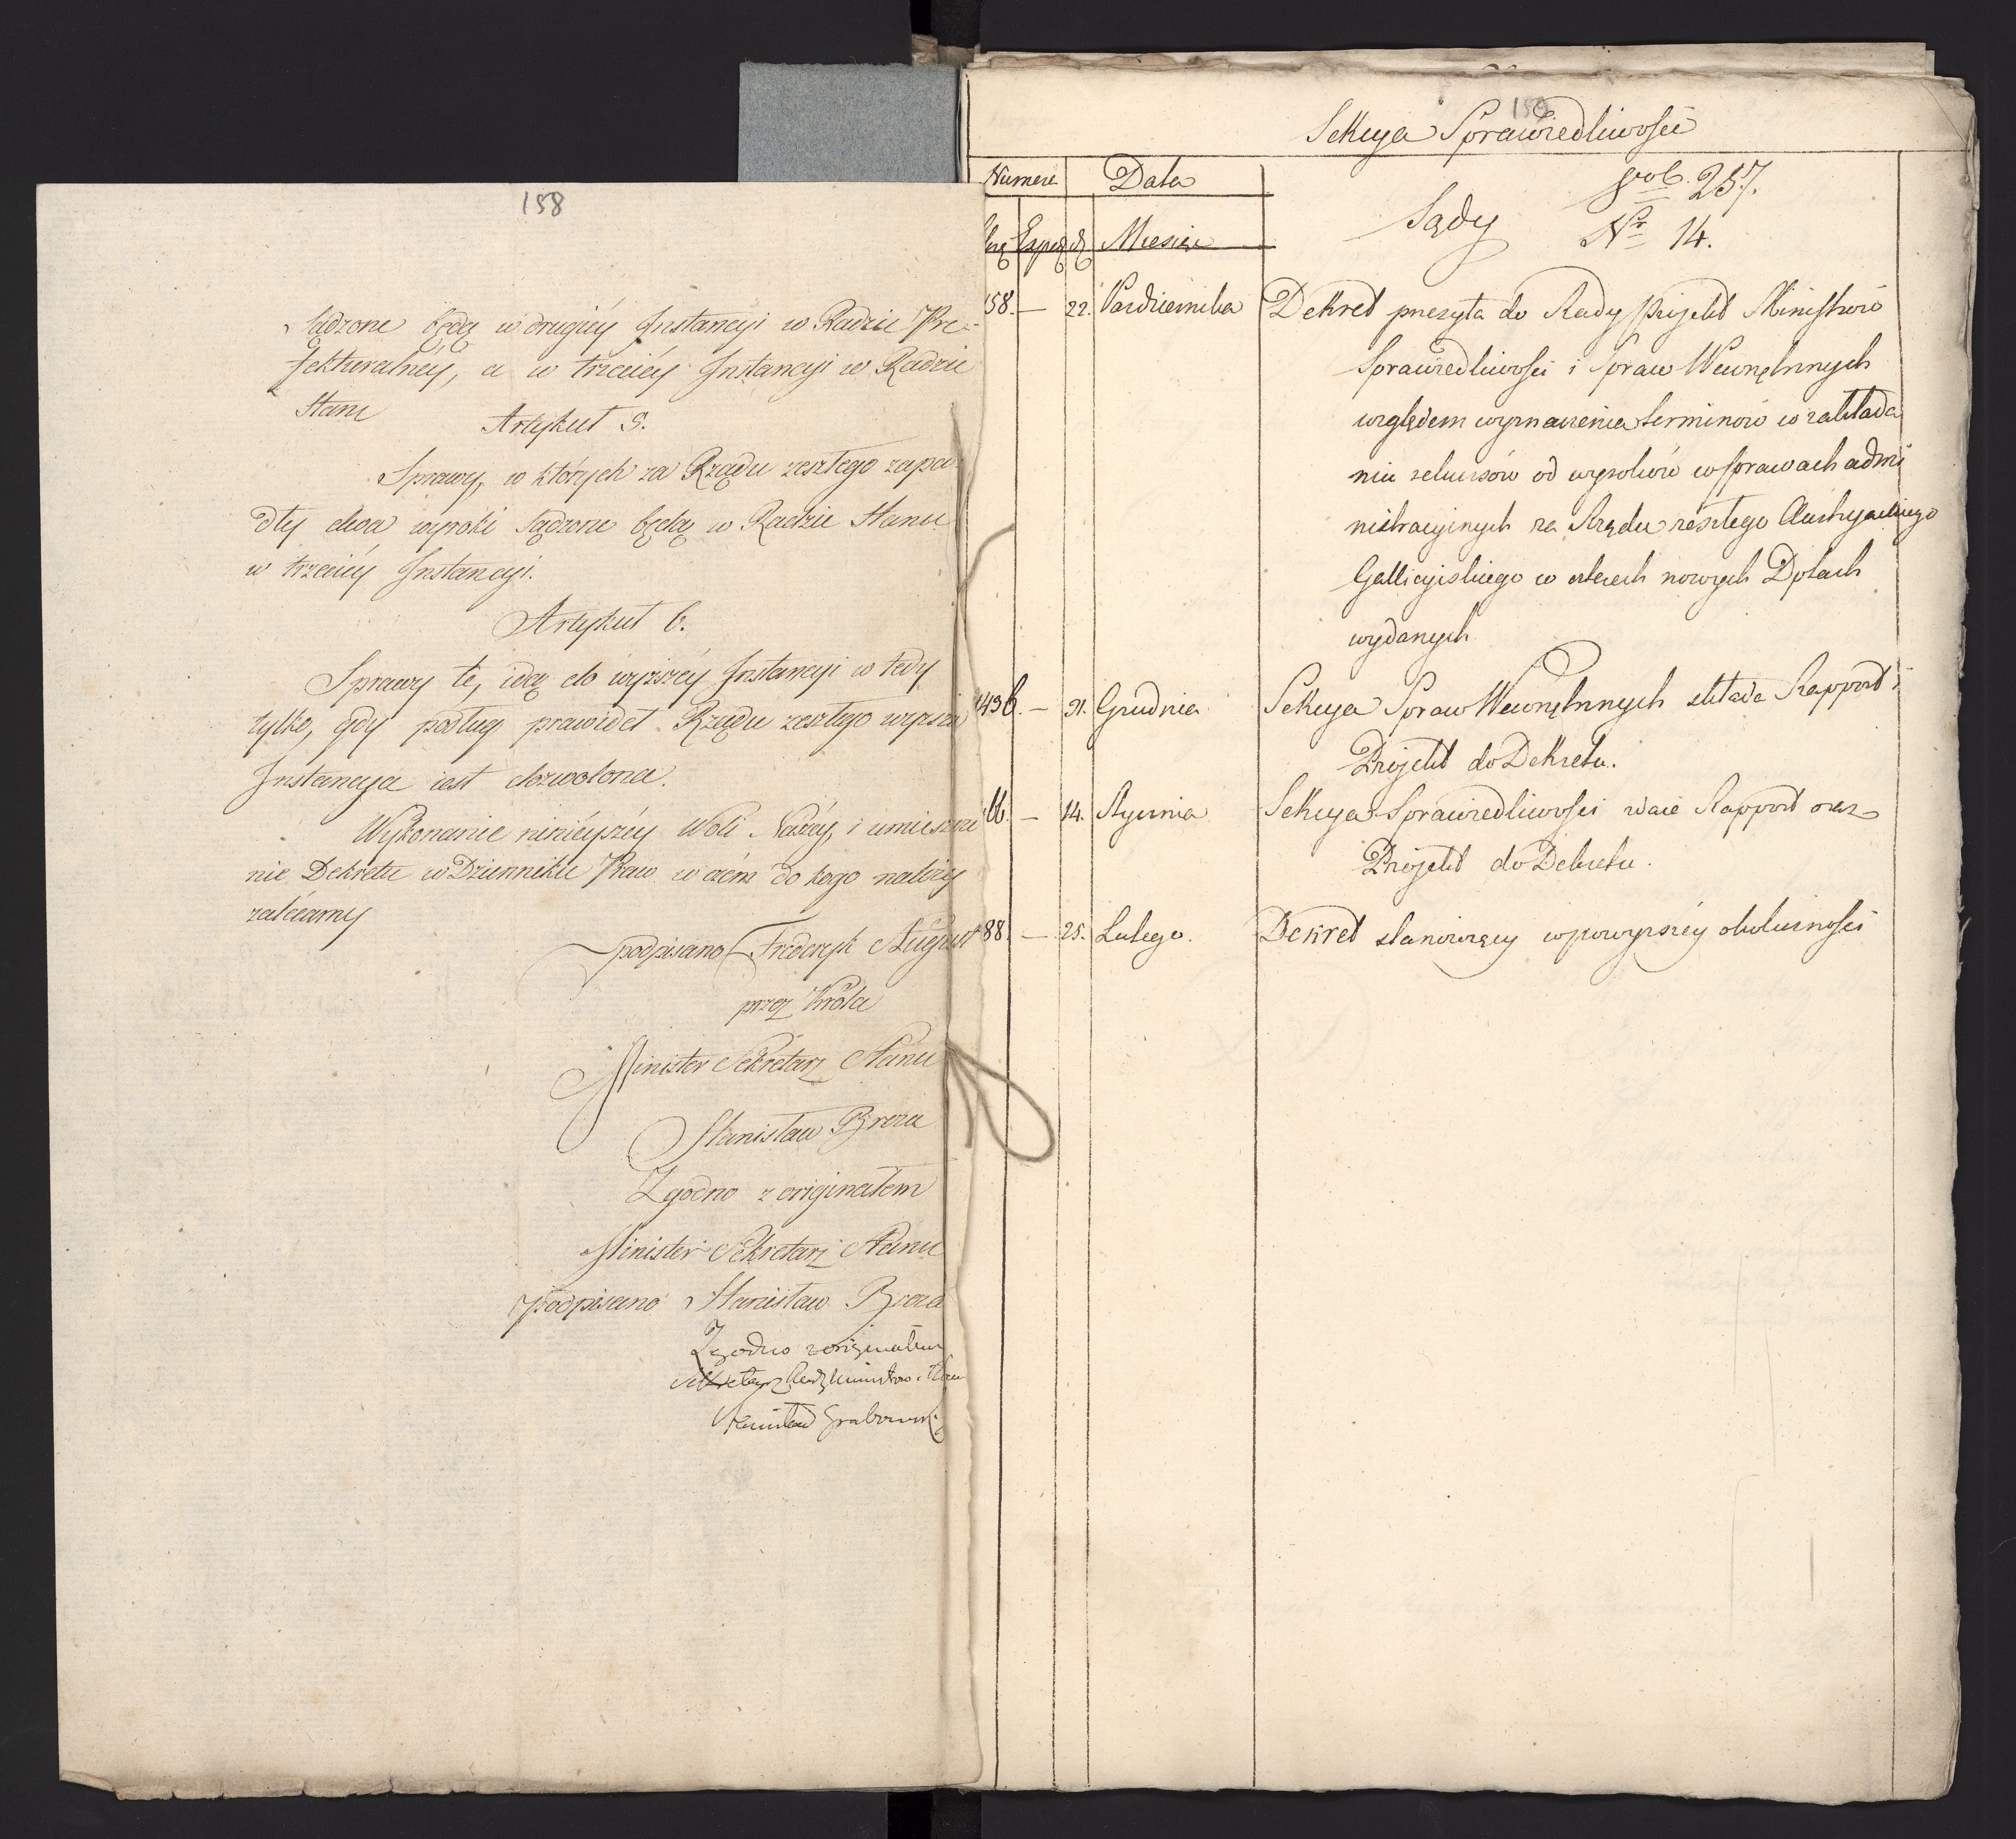 158
sądzone będą w drugiéy Instancyi w Radzie Pre-
fekturalnéy, a w trzeciéy Instancyi w Radzie
Stanu
Artykuł 5.
Sprawy, w których za Rządu zeszłego zapa
dły dwa wyroki sądzone będą w Radzie Stanu
w trzeciéy Instancyi.
Artykuł 6.
Sprawy te, idą do wyższéy Instancyi w tedy
tylko, gdy podług prawideł Rządu zeszłego wyższa
Instancya iest dozwolona.
Wykonanie ninieyszéy Woli Naszéy, i umieszcze
nie Dekretu w Dzienniku Praw w czém do kogo należy
zalécamy
podpisano Frederyk August
przez Króla
Minister Sekretarz Stanu
Stanisław Breza
Zgodno z originałem
Minister Sekretarz Stanu
podpisano Stanisław Breza
Zgodno z originałem
Sekretarz Rady Ministrów
Grabowski
159
Sekcya Sprawiedliwości
Numera Data
Sądy
vol. 257.
Nr 14.
Exped. Miesiąc
58. — 22. Pazdziernika Dekret przesyła do Rady Projekt Ministrów
Sprawiedliwości i Spraw Wewnętrznych
względem wyznaczenia terminów w zakłada
niu rekursów od wyroków w sprawach admi
nistracyinych za Rządu zeszłego Austryackiego
Gallicyiskiego w czterech nowych Dptach
wydanych
1436. — 31. Grudnia Sekcya Spraw Wewnętrznych składa Rapport i
Projekt do Dekretu.
66. — 14. Stycznia Sekcya Sprawiedliwości zdaie Rapport oraz
Projekt do Dekretu.
88. — 25. Lutego. Dekret stanowiący w powyższéy okoliczności